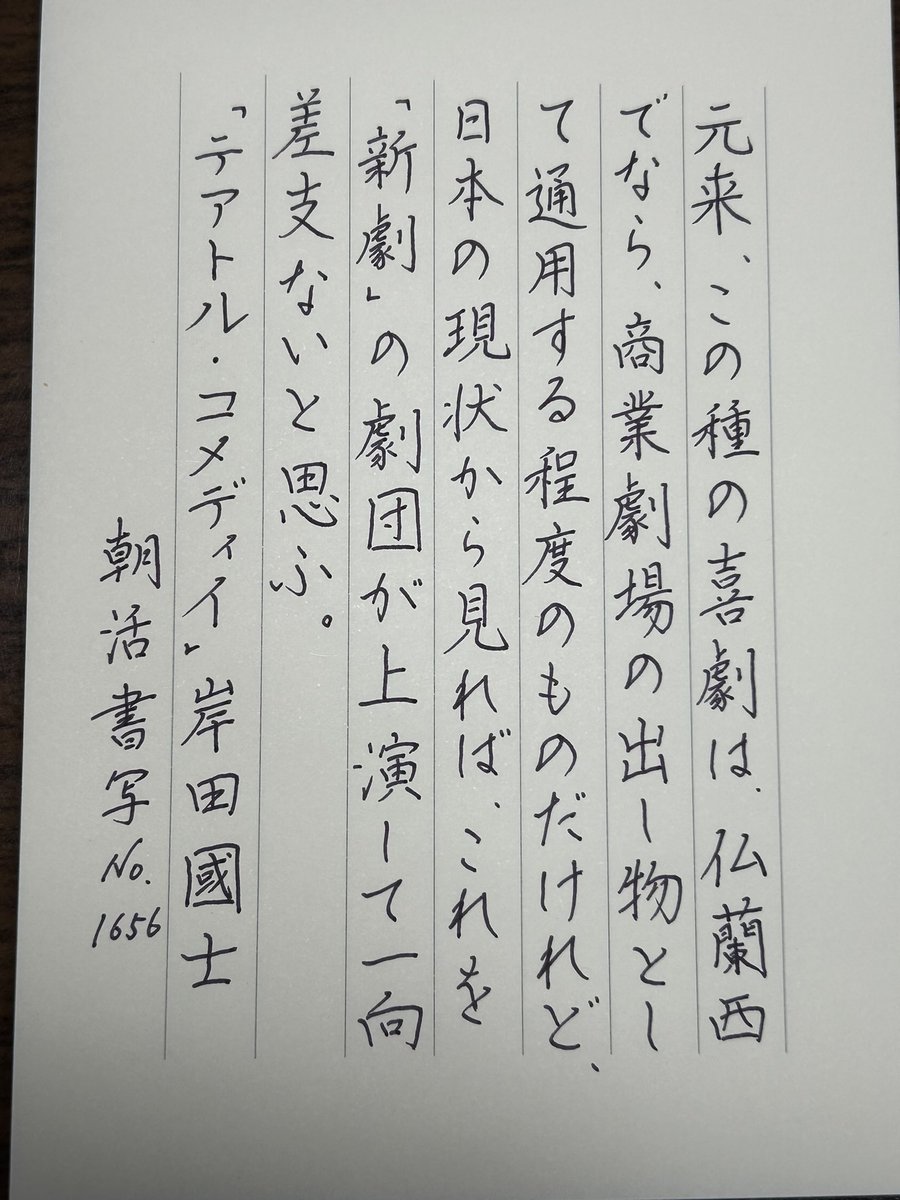 元来、この種の喜劇は、仏蘭西
でなら、商業劇場の出し物とし
て通用する程度のものだけれど、
日本の現状から見れば、これを
「新劇」の劇団が上演して一向
差支ないと思ふ。
「テアトル・コメディイ」岸田國士
朝活書写No.1656